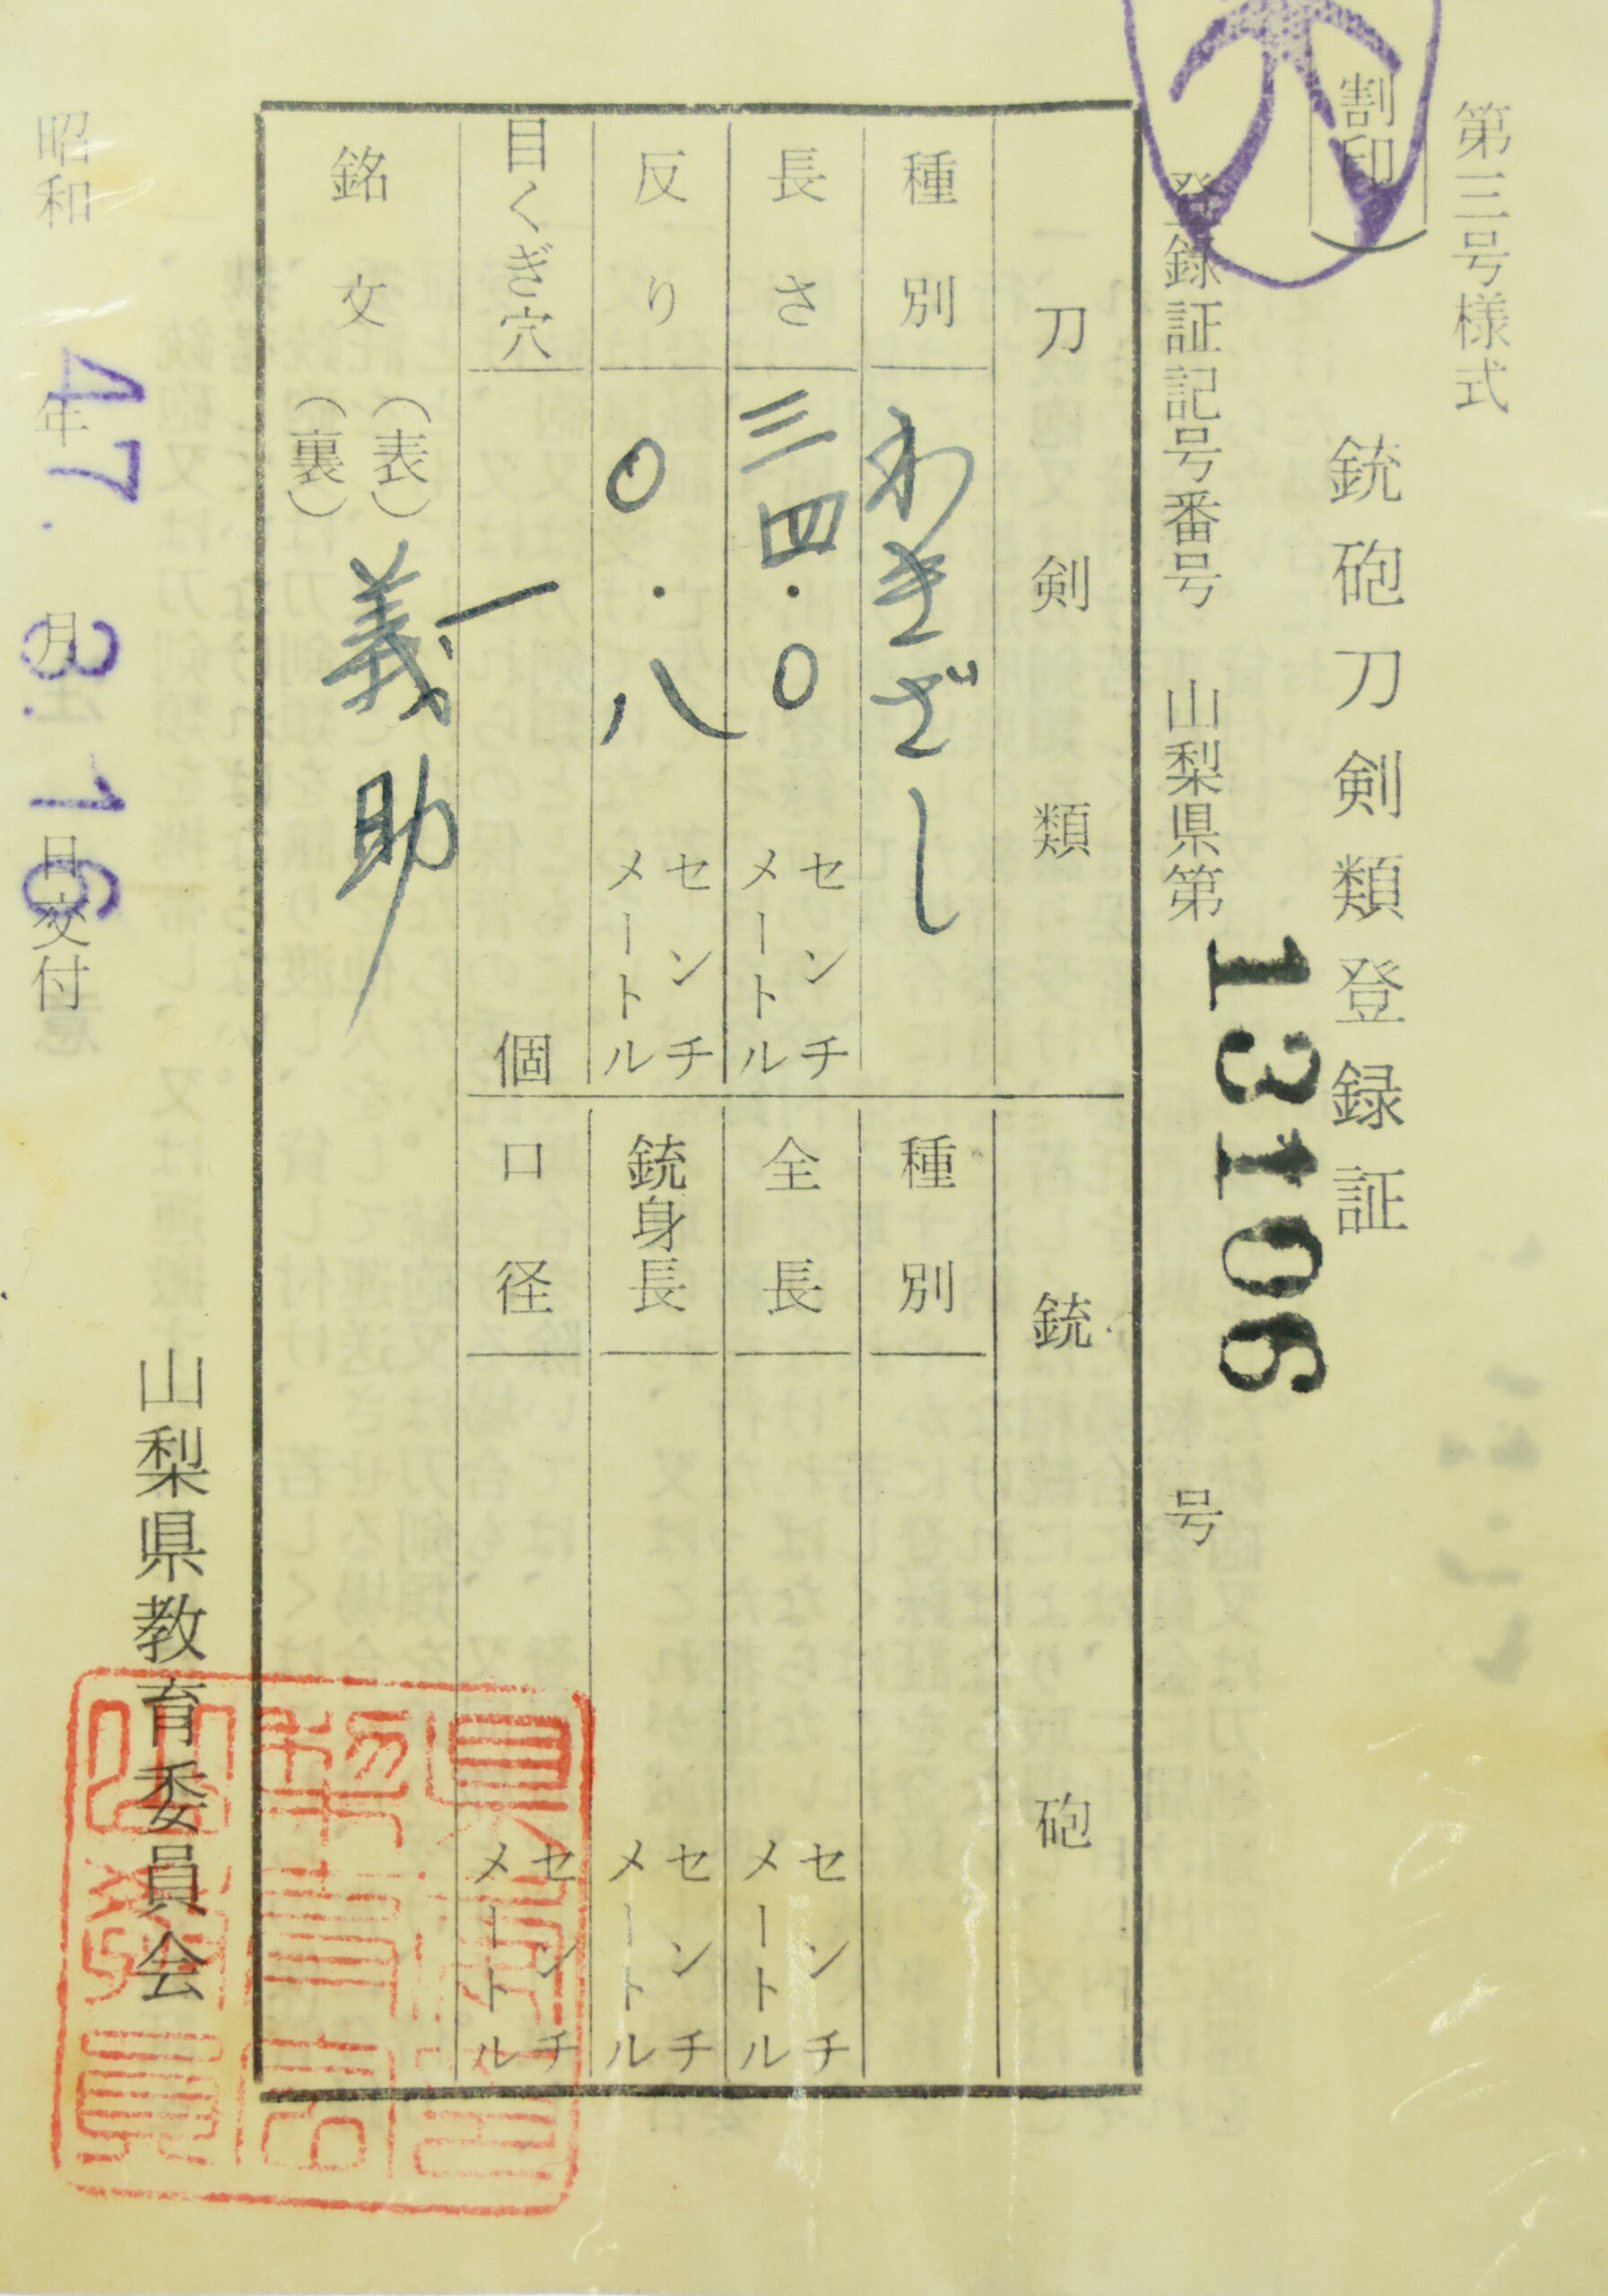 第三号様式
割印
銃砲刀剣類登録証
登録証記号番号 山梨県第 13106 号
刀剣類 銃砲
種別 わきざし 種別
長さ 三四.〇 センチメートル 全長 センチメートル
反り 〇.八 センチメートル 銃身長 センチメートル
目くぎ穴 一 個 口径 センチメートル
銘文 (表) 義助
(裏)
山梨県教育委員会
昭和 47年 3月 16日交付